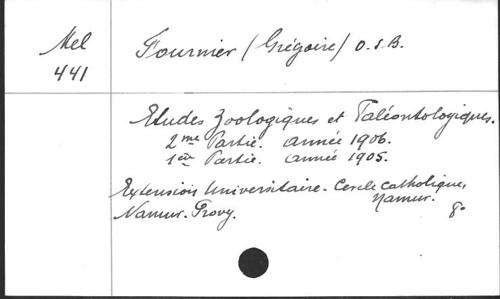 Mel
441
Fournier (Grégoire) O.S.B.
Etudes Zoologiques et Paléontologiques.
2me Partie. Année 1906.
1ère Partie. Année 1905.
Extension Universitaire. Cercle catholique,
Namur.
Namur. Provy. 8º